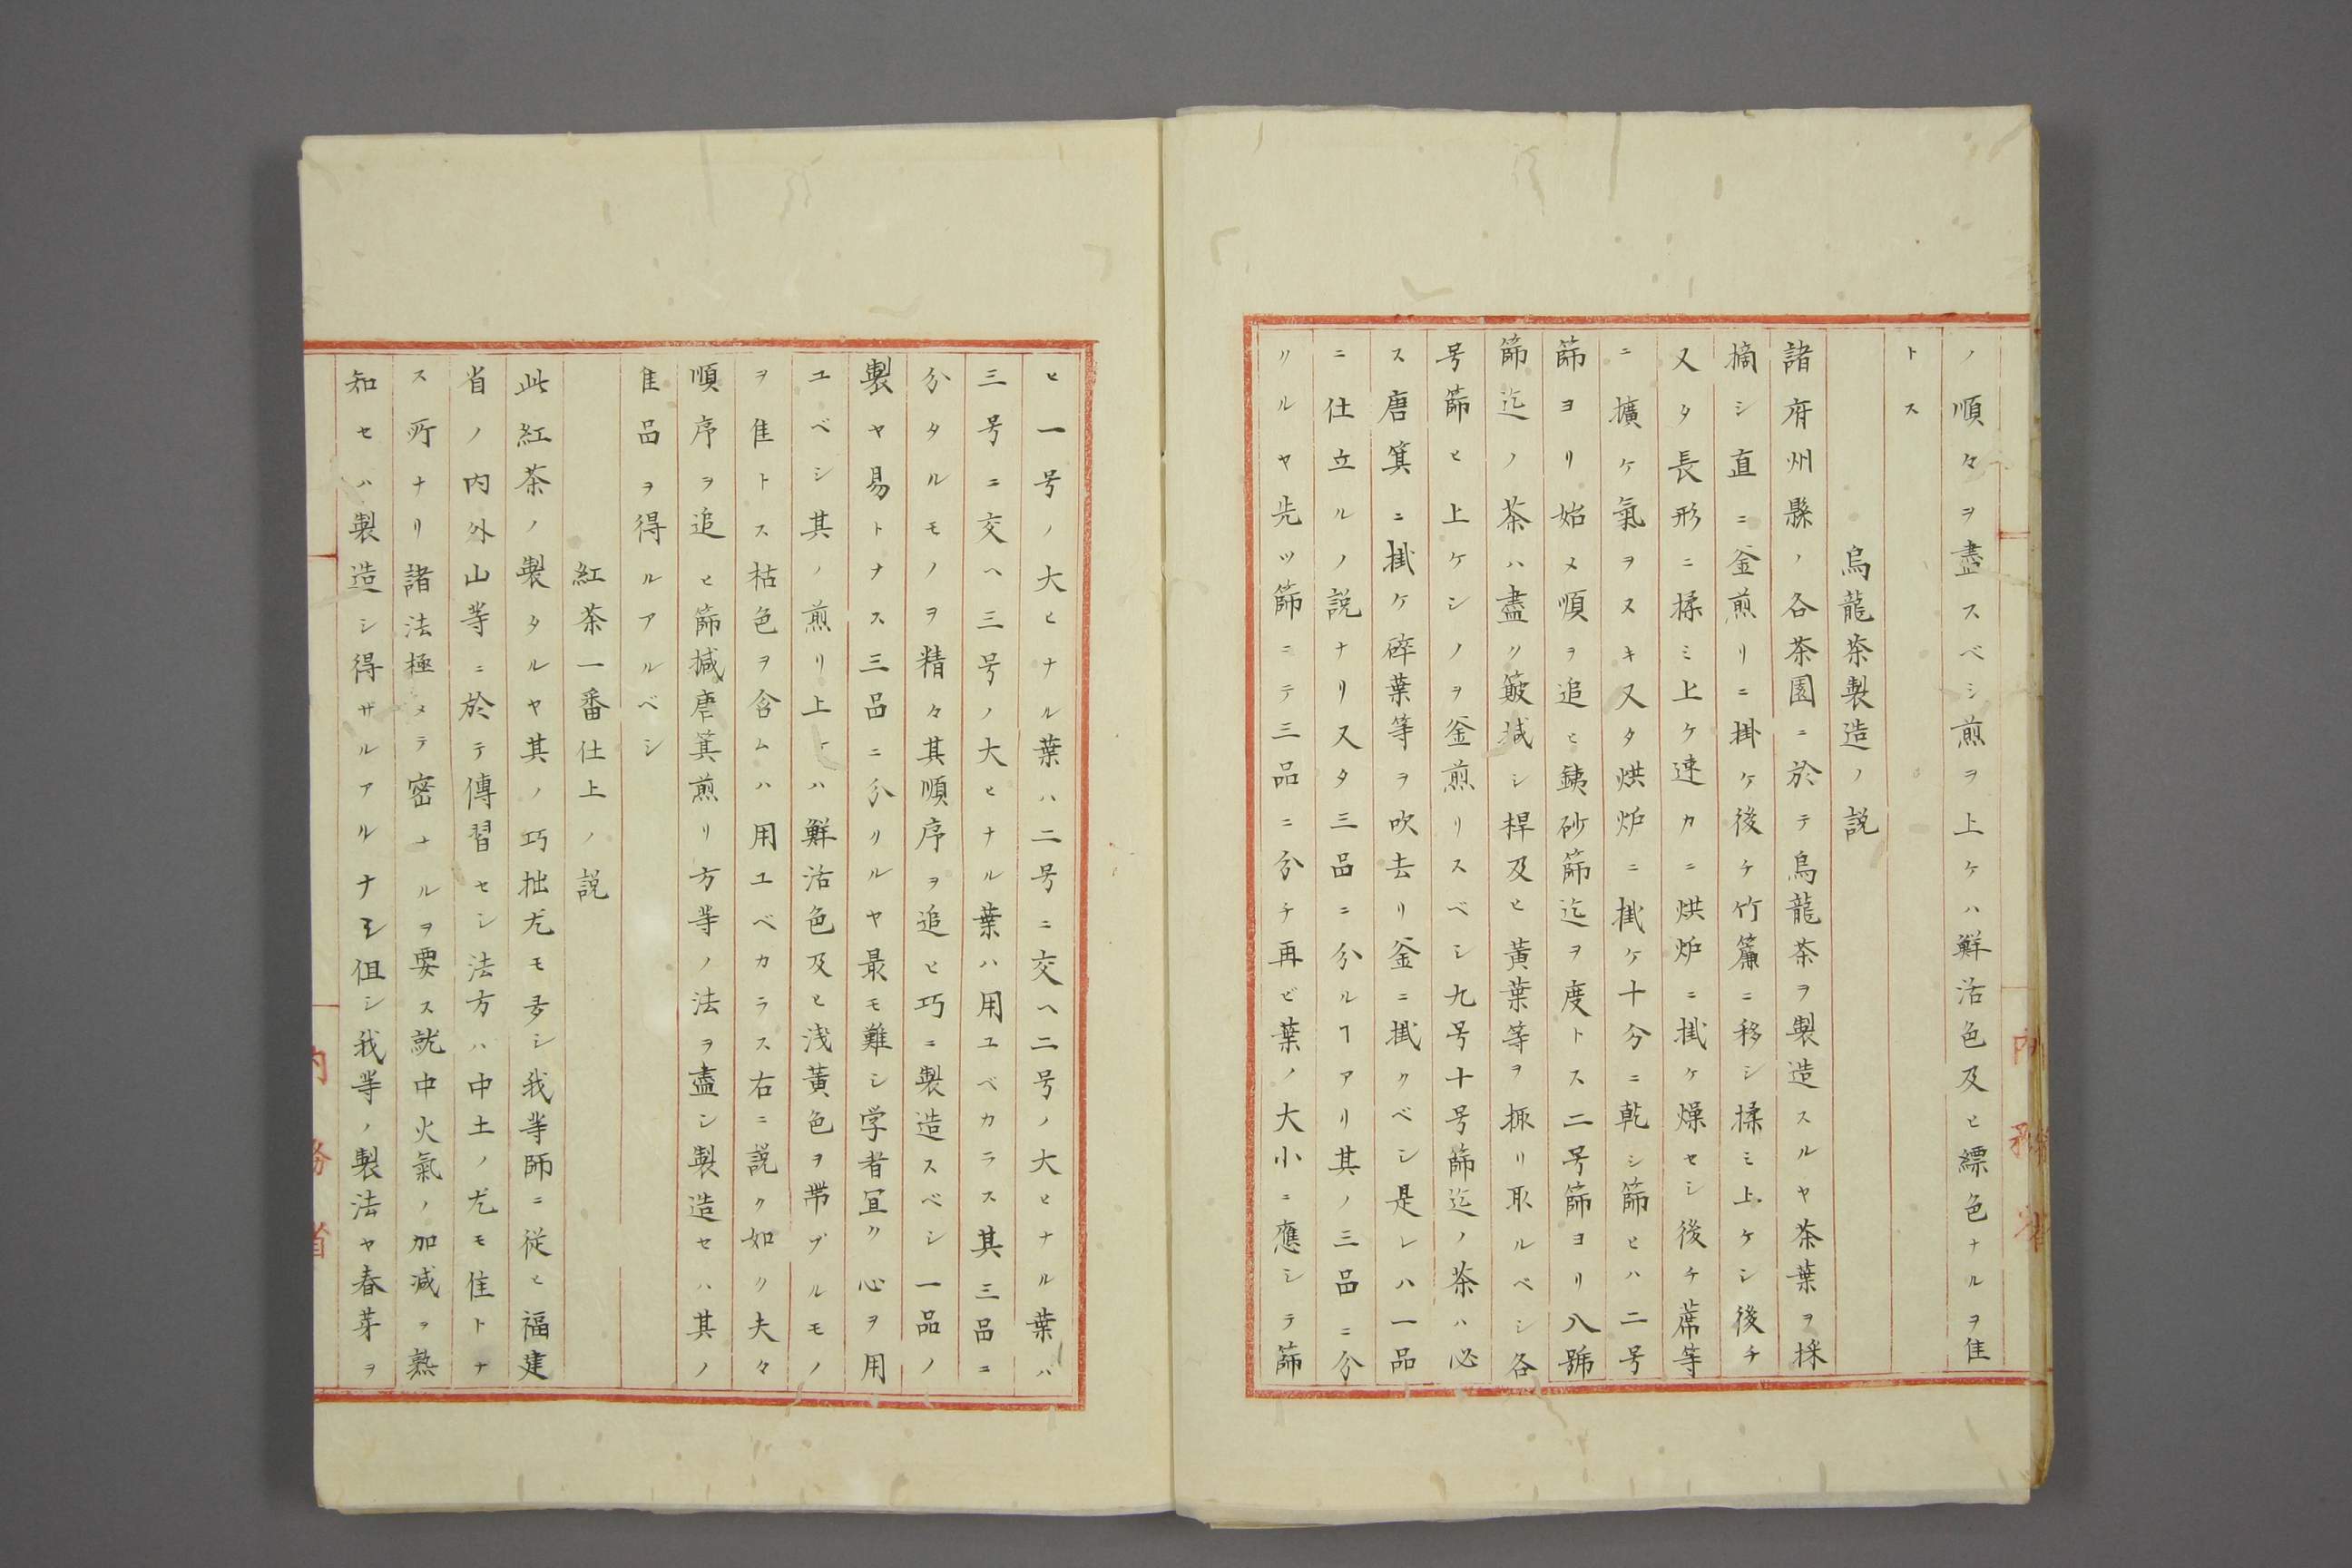 ノ順々ヲ盡スベシ煎ヲ上ケハ鮮活色及ヒ縹色ナルヲ佳
トス
烏龍茶製造ノ説
諸府州縣ノ各茶園ニ於テ烏龍茶ヲ製造スルヤ茶葉ヲ採
摘シ直ニ釜煎リニ掛ケ後チ竹簾ニ移シ揉ミ上ケシ後チ
又タ長形ニ揉ミ上ケ速カニ烘炉ニ掛ケ燥セシ後チ蓆等
ニ擴ケ氣ヲスキ又タ烘炉ニ掛ケ十分ニ乾シ篩ヒハ二号
篩ヨリ始メ順ヲ追ヒ銕砂篩迄ヲ度トス二号篩ヨリ八號
篩迄ノ茶ハ盡ク簸搣シ桿及ヒ黄葉等ヲ揀リ取ルベシ各
号篩ヒ上ケシノヲ釜煎リスベシ九号十号篩迄ノ茶ハ必
ス唐箕ニ掛ケ碎葉等ヲ吹去リ釜ニ掛クベシ是レハ一品
ニ仕立ルノ説ナリ又タ三品ニ分ルヿアリ其ノ三品ニ分
クルヤ先ツ篩ニテ三品ニ分チ再ビ葉ノ大小ニ應シテ篩
ヒ一号ノ大ヒナル葉ハ二号ニ交ヘ二号ノ大ヒナル葉ハ
三号ニ交ヘ三号ノ大ヒナル葉ハ用ユベカラス其三品ニ
分タルモノヲ精々其順序ヲ追ヒ巧ニ製造スベシ一品ノ
製ヤ易トナス三品ニ分リルヤ最モ難シ学者宜ク心ヲ用
ユベシ其ノ煎リ上ケハ鮮活色及ヒ浅黄色ヲ帶ブルモノ
ヲ佳トス枯色ヲ含ムハ用ユベカラス右ニ説ク如ク夫々
順序ヲ追ヒ篩搣唐箕煎リ方等ノ法ヲ盡シ製造セハ其ノ
佳品ヲ得ルアルベシ
紅茶一番仕上ノ説
此紅茶ノ製タルヤ其ノ巧拙尤モ多シ我等師ニ従ヒ福建
省ノ内外山等ニ於テ傳習セシ法方ハ中土ノ尤モ佳トナ
ス所ナリ諸法極メテ密ナルヲ要ス就中火氣ノ加減ヲ熟
知セハ製造シ得ザルアルナシ但シ我等ノ製法ヤ春芽ヲ
内務省
内務省